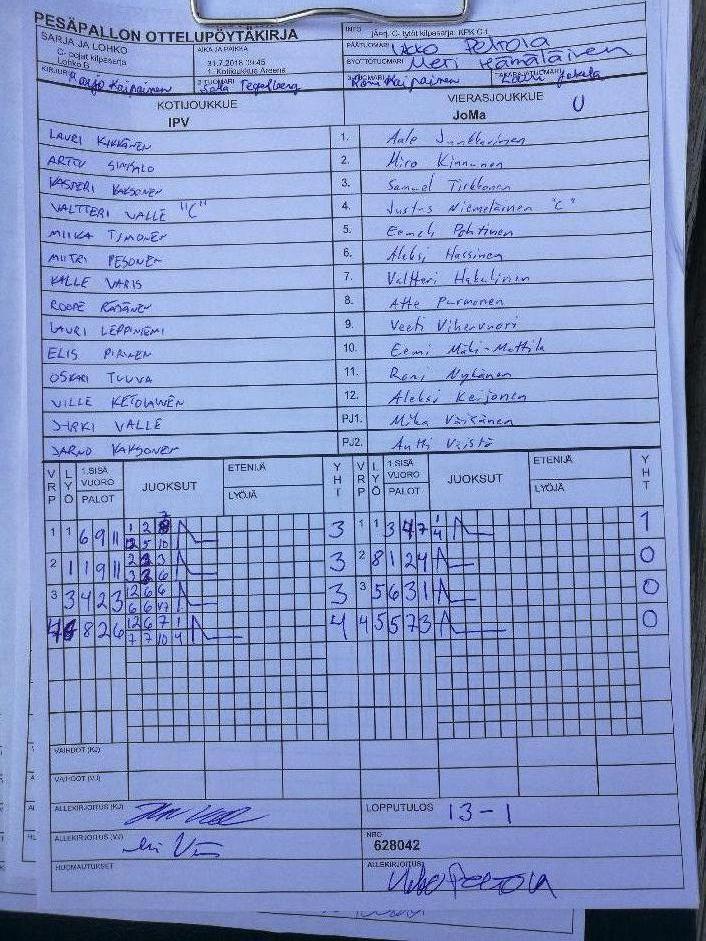 PESÄPALLON OTTELUPÖYTÄKIRJA
SARJA JA LOHKO
C- pojat kilpasarja
Lohko B
AIKA JA PAIKKA
31.7.2018
INFO
C- tytöt kilpasarja: KPK C1
PÄÄTUOMARI Ukko Peltola
SYÖTTÖTUOMARI Meri Hämäläinen
KIRJURI Marjo Kaipainen
2-TUOMARI Salla Tegelberg
3-TUOMARI Roni Kaipainen
TAKARAJATUOMARI
KOTIJOUKKUE
IPV
VIERASJOUKKUE U
JoMa
LAURI KIKKÄNEN 1. Aale Junkkarinen
ARTTU SIMSALO 2. Miro Kinnunen
KASPERI KAKSONEN 3. Samuel Tirkkonen
VALTTERI VALLE "C" 4. Justus Niemeläinen "C"
MIIKA TIMONEN 5. Eemeli Pohtinen
MIITRI PESONEN 6. Aleksi Hassinen
KALLE VARIS 7. Valtteri Hakulinen
ROOPE RÄSÄNEN 8. Atte Purmonen
LAURI LEPPINIEMI 9. Veeti Vihervuori
ELIS PIRINEN 10. Eemi Mäki-Mattila
OSKARI TUUVA 11. Roni Nykänen
VILLE KETOLAINEN 12. Aleksi Keijonen
JYRKI VALLE PJ1. Mika Väisänen
JARNO KAKSONEN PJ2. Antti Väistö
VRP LYÖ 1.SISÄ VUORO PALOT JUOKSUT ETENIJÄ LYÖJÄ YHT VRP LYÖ 1.SISÄ VUORO PALOT JUOKSUT ETENIJÄ LYÖJÄ YHT
1 1 6 9 11 3 1 1 3 4 7 1
2 1 1 9 11 3 2 8 1 2 4 0
3 3 4 2 3 3 3 5 6 3 1 0
4 8 2 6 4 4 5 5 7 3 0
VAIHDOT (KJ)
VAIHDOT (VJ)
ALLEKIRJOITUS (KJ)
LOPPUTULOS 13-1
ALLEKIRJOITUS (VJ)
NRO
628042
HUOMAUTUKSET
ALLEKIRJOITUS Ukko Peltola